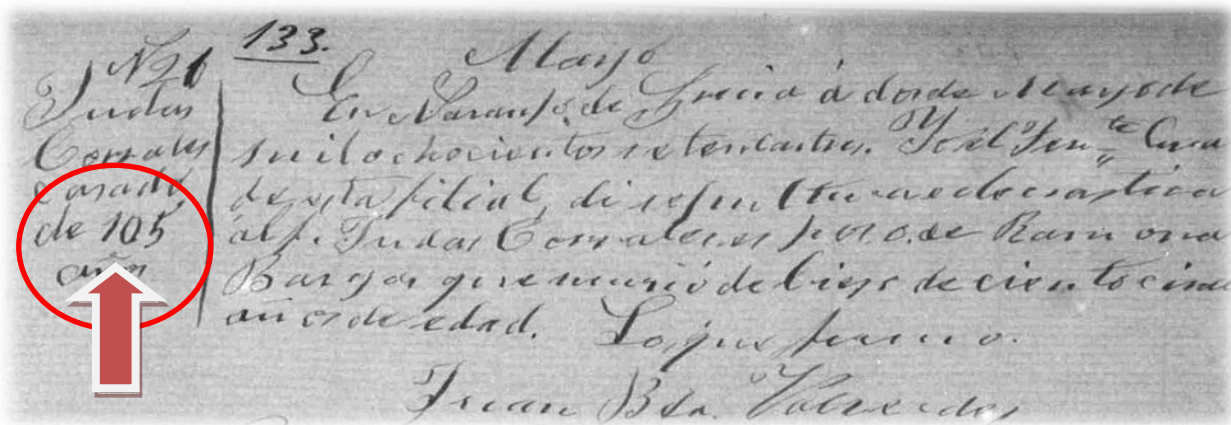 133.
Mayo
Nº 1
Judas
Corrales
casado,
de 105
años
En Naranjo de Grecia á dos de Mayo de
mil ochocientos setenta tres. Yo el Ten.te Cura
de esta filial, di sepultura eclesiastica
al p. Judas Corrales esposo de Ramona
Bargas que murió de biejo de ciento cinco
años de edad. Lo que firmo.
Juan Bta. Valverde